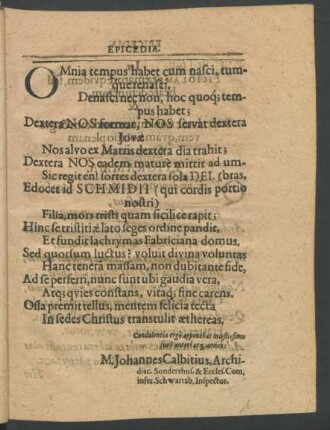 EPICEDIA.
OMnia tempus habet cum nasci, tum-
que renasci,
Denasci nec non, hoc quoq; tem-
pus habet;
Dextera NOS format, NOS servat dextera
Jovæ
Nos alvo ex Matris dextera dia trahit;
Dextera NOS eadem maturè mittit ad um-
Sic regit en! sortes dextera sola DEI. (bras,
Edocet id SCHMIDII (qui cordis portio
nostri)
Filia, mors tristi quam sicilice rapit;
Hinc se tristitiæ lato seges ordine pandit,
Et fundit lachrymas Fabriciana domus.
Sed quorsum luctus? voluit divina voluntas
Hanc tenera massam, non dubitante fide,
Ad se perferri, nunc sunt ubi gaudia vera,
Atq; quies constans, vitaq; fine carens.
Ossa premit tellus, mentem felicia tecta
In sedes Christus transtulit æthereas.
Condolentiæ ergò apponebat mœstissimo
M. Johannes Calbitius, Archi-
diac. Sondershus. & Eccles. Com,
infer. Schwartzb, Inspector.